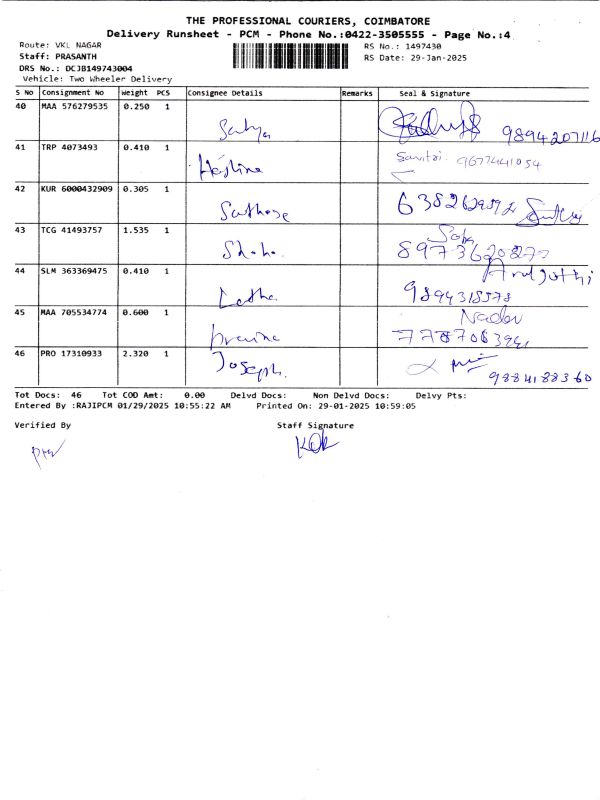 THE PROFESSIONAL COURIERS, COIMBATORE
Delivery Runsheet - PCM - Phone No.:0422-3505555 - Page No.:4
Route: VKL NAGAR RS No.: 1497430
Staff: PRASANTH RS Date: 29-Jan-2025
DRS No.: DCJB149743004
Vehicle: Two Wheeler Delivery
S No Consignment No Weight PCS Consignee Details Remarks Seal & Signature
40 MAA 576279535 0.250 1 Sathya 9894207116
41 TRP 4073493 0.410 1 Savitri 9677441054
42 KUR 6000432909 0.305 1
43 TCG 41493757 1.535 1
44 SLM 363369475 0.410 1 Latha Aruljothi
9894318578
45 MAA 705534774 0.600 1
46 PRO 17310933 2.320 1 Joseph. 9884188360
Tot Docs: 46 Tot COD Amt: 0.00 Delvd Docs: Non Delvd Docs: Delvy Pts:
Entered By :RAJIPCM 01/29/2025 10:55:22 AM Printed On: 29-01-2025 10:59:05
Verified By Staff Signature